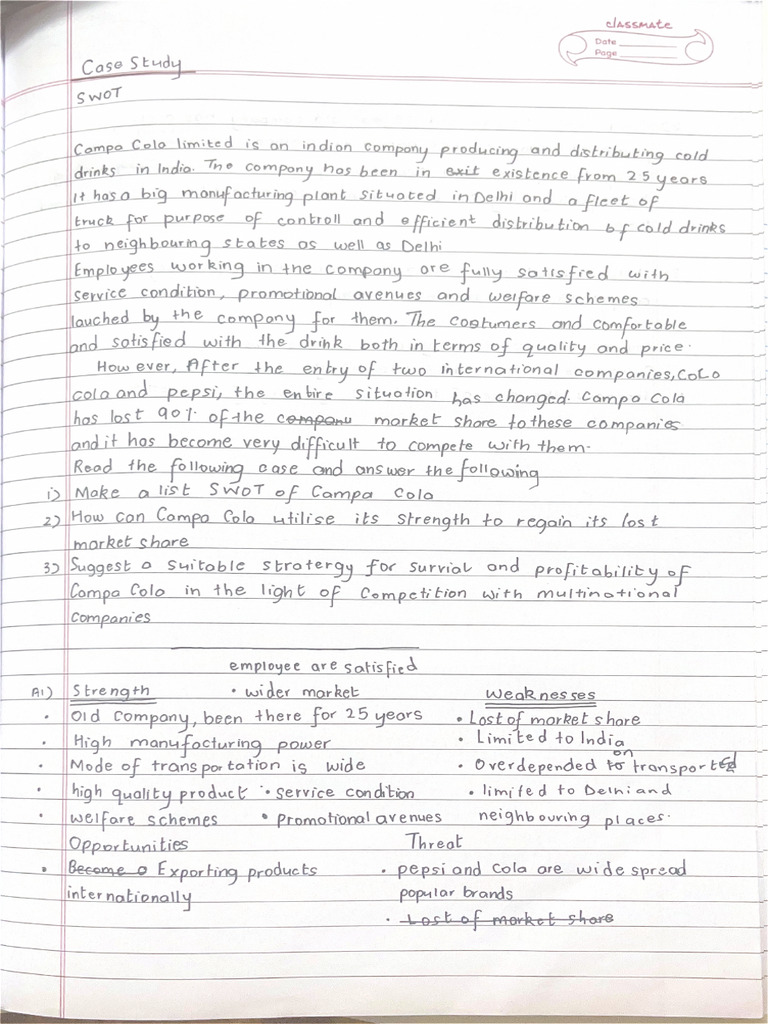 classmate
Date
Page
Case Study
SWOT
Campa Cola limited is an indian company producing and distributing cold
drinks in India. The company has been in exit existence from 25 years
It has a big manufacturing plant situated in Delhi and a fleet of
truck for purpose of controll and efficient distribution of cold drinks
to neighbouring states as well as Delhi
Employees working in the company are fully satisfied with
service condition, promotional avenues and welfare schemes
lauched by the company for them. The costumers and comfortable
and satisfied with the drink both in terms of quality and price.
How ever, After the entry of two international companies, CoCo
cola and pepsi, the entire situation has changed. Campa Cola
has lost 90% of the company market share to these companies
and it has become very difficult to compete with them.
Read the following case and answer the following
1) Make a list SWOT of Campa Cola
2) How can Campa Cola utilise its strength to regain its lost
market share
3) Suggest a suitable stratergy for survial and profitability of
Campa Cola in the light of Competition with multinational
companies
employee are satisfied
A1) Strength • wider market Weaknesses
• Old Company, been there for 25 years • Lost of market share
• High manufacturing power • Limited to India
• Mode of transportation is wide • Overdepended to on transported
• high quality product • service condition • limited to Delhi and
• welfare schemes • promotional avenues neighbouring places.
Opportunities Threat
• Become a Exporting products • pepsi and Cola are wide spread
internationally popular brands
• Lost of market share